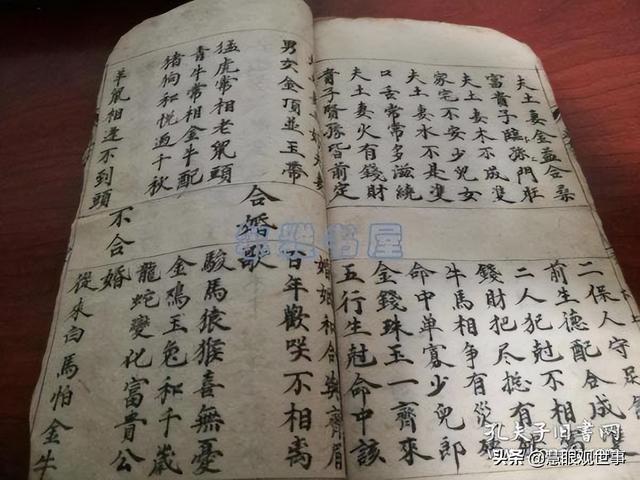 夫土妻金益合桑
富貴子臨孫門旺
夫土妻木不成雙
家宅不安少兒女
夫土妻水不是雙
口舌常常多滋繞
夫土妻火有錢財
育子賢孫皆前定
二保人守足
前生德配合成
二人犯尅不相
錢財把尽總有
牛馬相争有災殃
命中单寡少兒郎
金錢珠玉一齊來
五行生尅命中該
男女金頂並玉帶
婚姻和合與齊眉
百年歡笑不相离
合婚歌
猛虎常相老鼠頭
駿馬猿猴喜無憂
青牛常相金牛配
金鷄玉兔和千歲
猪狗和悦過千秋
龍蛇變化富貴公
不合婚
羊鼠相逢不到頭
從來白馬怕金牛
书屋
孔夫子旧书网
头条 @慧眼观世事